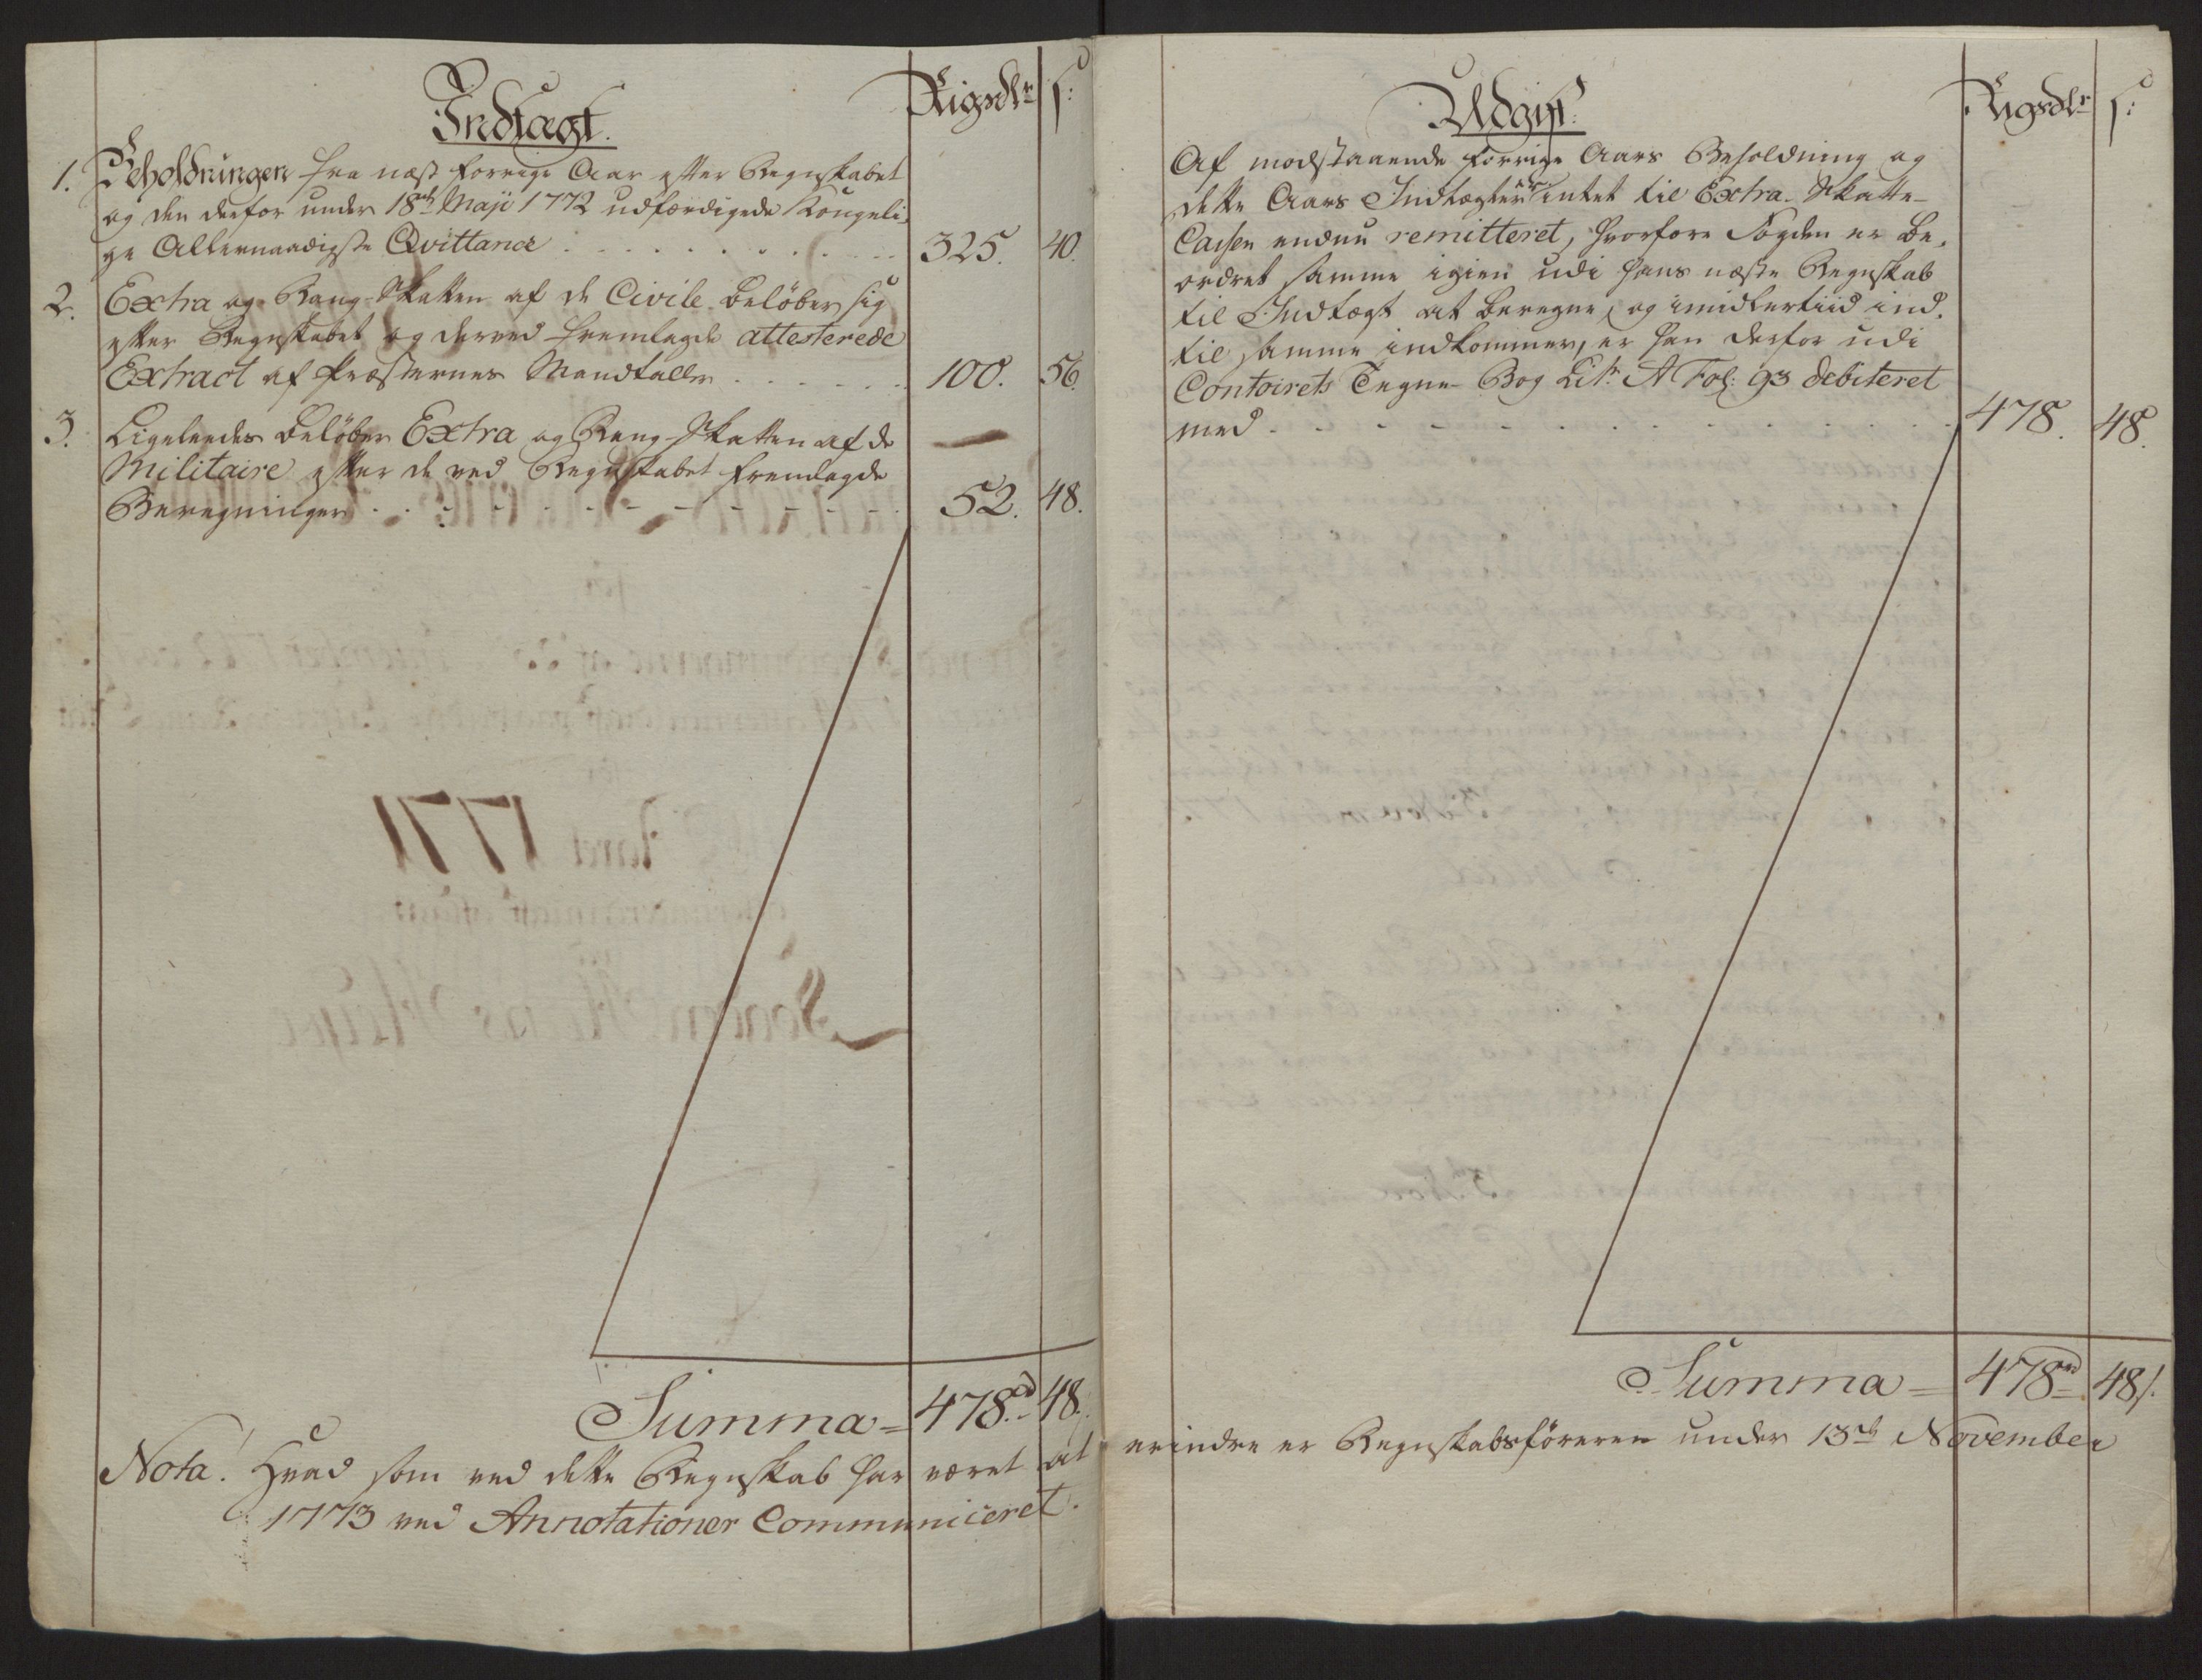 Indtægt.
Rigsdlr
s:
1. Beholdningen fra næst forrige Aar efter Regnskabet
og den derfor under 18de Maji 1772 udfærdigede Kongeli-
ge Allernaadigste Qvittance . . . . . . . 325. 40.
2. Extra og Rang-Skatten af de Civile beløber sig
efter Regnskabet og derved fremlagde attesterede
Extract af Præsternes Mandtaller . . . . . . 100. 56.
3. Ligeleedes beløber Extra og Rang-Skatten af de
Militaire efter de ved Regnskabet fremlagde
Beregninger . . . . . . . . . . . 52. 48.
Summa = 478rd 48.
Udgift.
Rigsdlr
s:
Af modstaaende forrige Aars Beholdning og
dette Aars Indtægter er intet til Extra-Skatte-
Cassen endnu remitteret, hvorfore Fogden er be-
ordret samme igien udi hans næste Regnskab
til Indtægt at beregne, og imidlertiid ind-
til samme indkommer, er han derfor udi
Contoirets Tegne-Bog Litr A Fol: 93 debiteret
med . . . . . . . . . . . 478. 48.
Summa = 478rd 48s.
Nota. Hvad som ved dette Regnskab har været at erindre er Regnskabsføreren under 13de November
1773 ved Annotationer Communiceret.